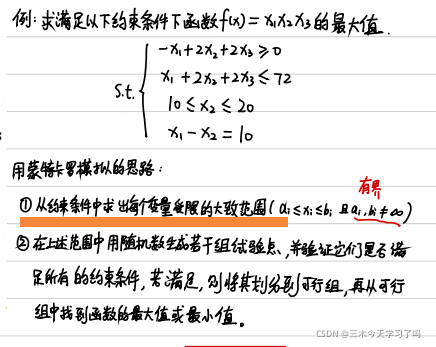 例：求满足以下约束条件下函数f(x)=x₁x₂x₃的最大值.
s.t. { -x₁+2x₂+2x₃≥0
x₁+2x₂+2x₃≤72
10≤x₂≤20
x₁-x₂=10
用蒙特卡罗模拟的思路：
有界
①从约束条件中求出每个变量受限的大致范围(aᵢ≤xᵢ≤bᵢ 且aᵢ,bᵢ≠∞)
②在上述范围中用随机数生成若干组试验点、并验证它们是否满
足所有的约束条件，若满足，则将其划分到可行组，再从可行
组中找到函数的最大值或最小值。
CSDN @三木今天学习了吗